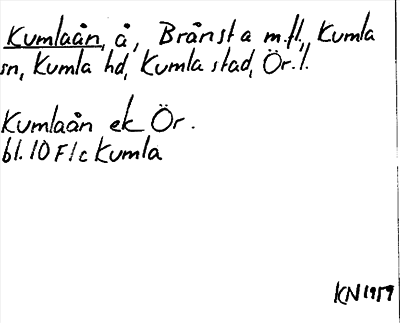 Kumlaån, å, Brånsta m.fl., Kumla
sn, Kumla hd, Kumla stad, Ör. l.
Kumlaån ek Ör.
bl. 10 F1c Kumla
KN 1959